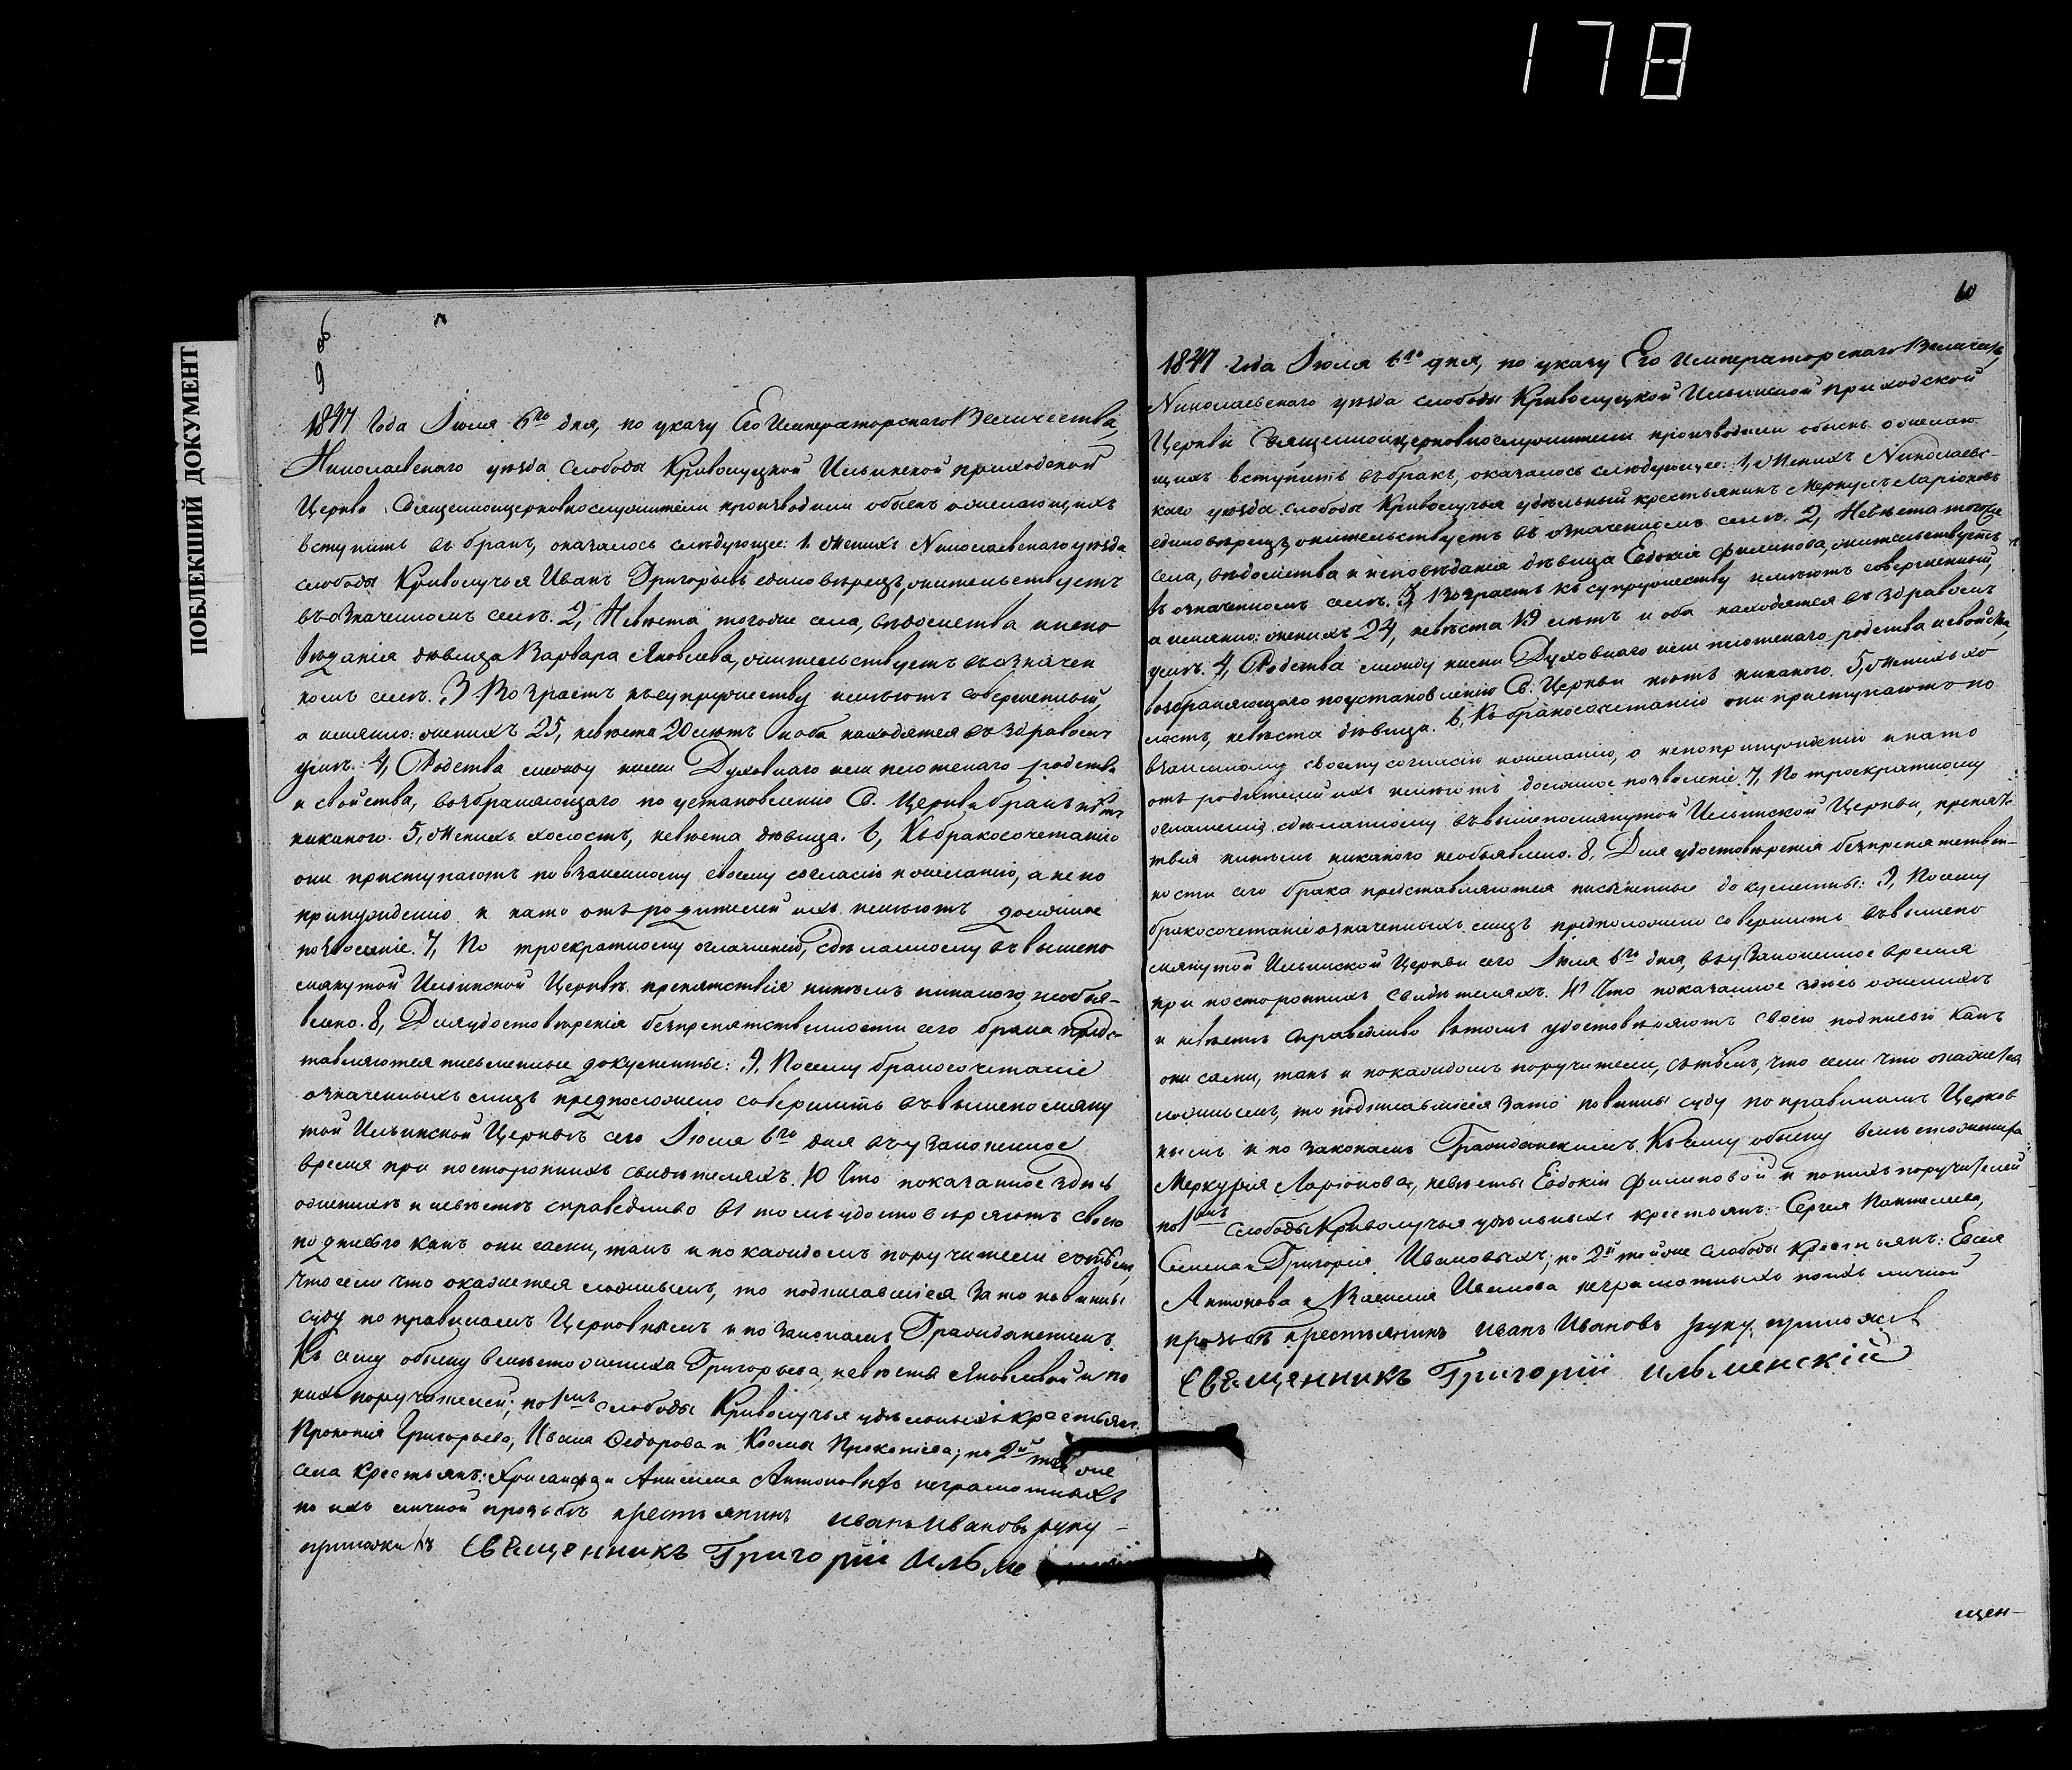 178
ПОБЛЕКШИЙ ДОКУМЕНТ
1847 Года Іюля 6го дня, по указу Его Императорскаго Величества,
Николаевскаго уѣзда слободы Криволуцкой Ильинской приходской
Церкви Священноицерковнослужители производили обыскъ ожелающихъ
вступить въ бракъ, оказалось слѣдующее: 1. Женихъ Николаевскаго уѣзда
слободы Криволучья Иванъ Григорьевъ единовѣрецъ, жительствуетъ
въ означенномъ селѣ. 2, Невѣста тогоже села, вѣдомства и испо
вѣданія дѣвица Варвара Яковлева, жительствуетъ въ означен
номъ селѣ. 3 Возрастъ къ супружеству имѣютъ совершенный,
а имянно: женихъ 25, невѣста 20 лѣтъ и оба находятся въ здравомъ
умѣ. 4, Родства между ними Духовнаго или плотскаго родства
и свойства, возбраняющаго по установленію Св. Церкви бракъ нѣтъ
никакого. 5, Женихъ холостъ, невѣста дѣвица. 6, Къ бракосочетанію
они приступаютъ по взаимному своему согласію и желанію, а не по
принужденію и на то отъ родителей ихъ имѣютъ должное
позволеніе. 7, По троекратному оглашенію, сдѣланному въ вышепо
мянутой Ильинской Церквѣ препятствія никѣмъ никакого необъя-
влено. 8, Для удостовѣренія безпрепятственности сего брака предс-
тавляются письменные документы: 9, Посему бракосочетаніе
означенныхъ лицъ предположено совершить въ вышепомяну
той Ильинской Церквѣ сего Іюля 6го дня въ узаконенное
время при постороннихъ свидѣтеляхъ. 10 Что показанное здѣсь
оженихѣ и невѣстѣ справедливо въ томъ удостовѣряютъ своею
подписью какъ они сами, такъ и по каждомъ поручители стѣмъ,
что если что окажется ложнымъ, то подписавшіеся за то повинны
суду по правиламъ Церковнымъ и по законамъ Гражданскимъ.
Къ сему обыску вмѣсто жениха Григорьева, невѣсты Яковлевой и по
нихъ поручителей; по 1мъ слободы Криволучья удѣльныхъ крестьянъ:
Прокопія Григорьева, Ивана Федорова и Козмы Прокопіева; по 2й той же
села крестьянъ: Хрисанфа и Анисима Антоновыхъ неграмотныхъ
по ихъ личной прозьбѣ крестьянинъ Иванъ Ивановъ руку
приложилъ Священникъ Григорій Ильме
10
1847 года Іюля 6го дня, по указу Его Императорскаго Величества,
Николаевскаго уѣзда слободы Криволуцкой Ильинской приходской
Церкви Священноицерковнослужители производили обыскъ ожелаю
щихъ вступить въ бракъ, оказалось слѣдующее: 1, Женихъ Николаевс-
каго уѣзда слободы Криволучья удѣльный крестьянинъ Меркулъ Ларіоновъ
единовѣрецъ, жительствуетъ въ означенномъ селѣ. 2, Невѣста тогоже
села, вѣдомства и исповѣданія дѣвица Евдокія Филипова, жительствуетъ
въ означенномъ селѣ. 3, Возрастъ къ супружеству имѣютъ совершенный,
а имянно: женихъ 24, невѣста 19 лѣтъ и оба находятся въ здравомъ
умѣ. 4, Родства между ними Духовнаго или плотскаго родства и свойства,
возбраняющаго по установленію Св. Церкви нѣтъ никакого. 5, Женихъ хо
лостъ, невѣста дѣвица. 6, Къ бракосочетанію они приступаютъ по
взаимному своему согласію и желанію, а не по принужденію и на то
отъ родителей ихъ имѣютъ должное позволеніе 7, По троекратному
оглашенію, сдѣланному въ вышепомянутой Ильинской Церкви, препятс
твія никѣмъ никакого необъявлено. 8, Для удостовѣренія безпрепятствен-
ности сего брака представляются письменные документы: 9, Посему
бракосочетаніе означенныхъ лицъ предположено совершить въ вышепо
мянутой Ильинской Церкви сего Іюля 6го дня, въ узаконенное время
при постороннихъ свидѣтеляхъ. 10 Что показанное здѣсь оженихѣ
и невѣстѣ справедливо въ томъ удостовѣряютъ своею подписью какъ
они сами, такъ и по каждомъ поручители, стѣмъ, что если что окажется
ложнымъ, то подписавшіеся за то повинны суду по правиламъ Церков
нымъ и по законамъ Гражданскимъ. Къ сему обыску вмѣсто жениха
Меркурія Ларіонова, невѣсты Евдокіи Филиповой и по нихъ поручителей
по 1мъ слободы Криволучья удѣльныхъ крестьянъ: Сергея Пантелеева,
Семена и Григорія Ивановыхъ; по 2й той же слободы крестьянъ: Евсея
Антонова и Василія Иванова неграмотныхъ по ихъ личной
прозьбѣ крестьянинъ Иванъ Ивановъ руку приложилъ
Священникъ Григорій Ильменскій
щен-